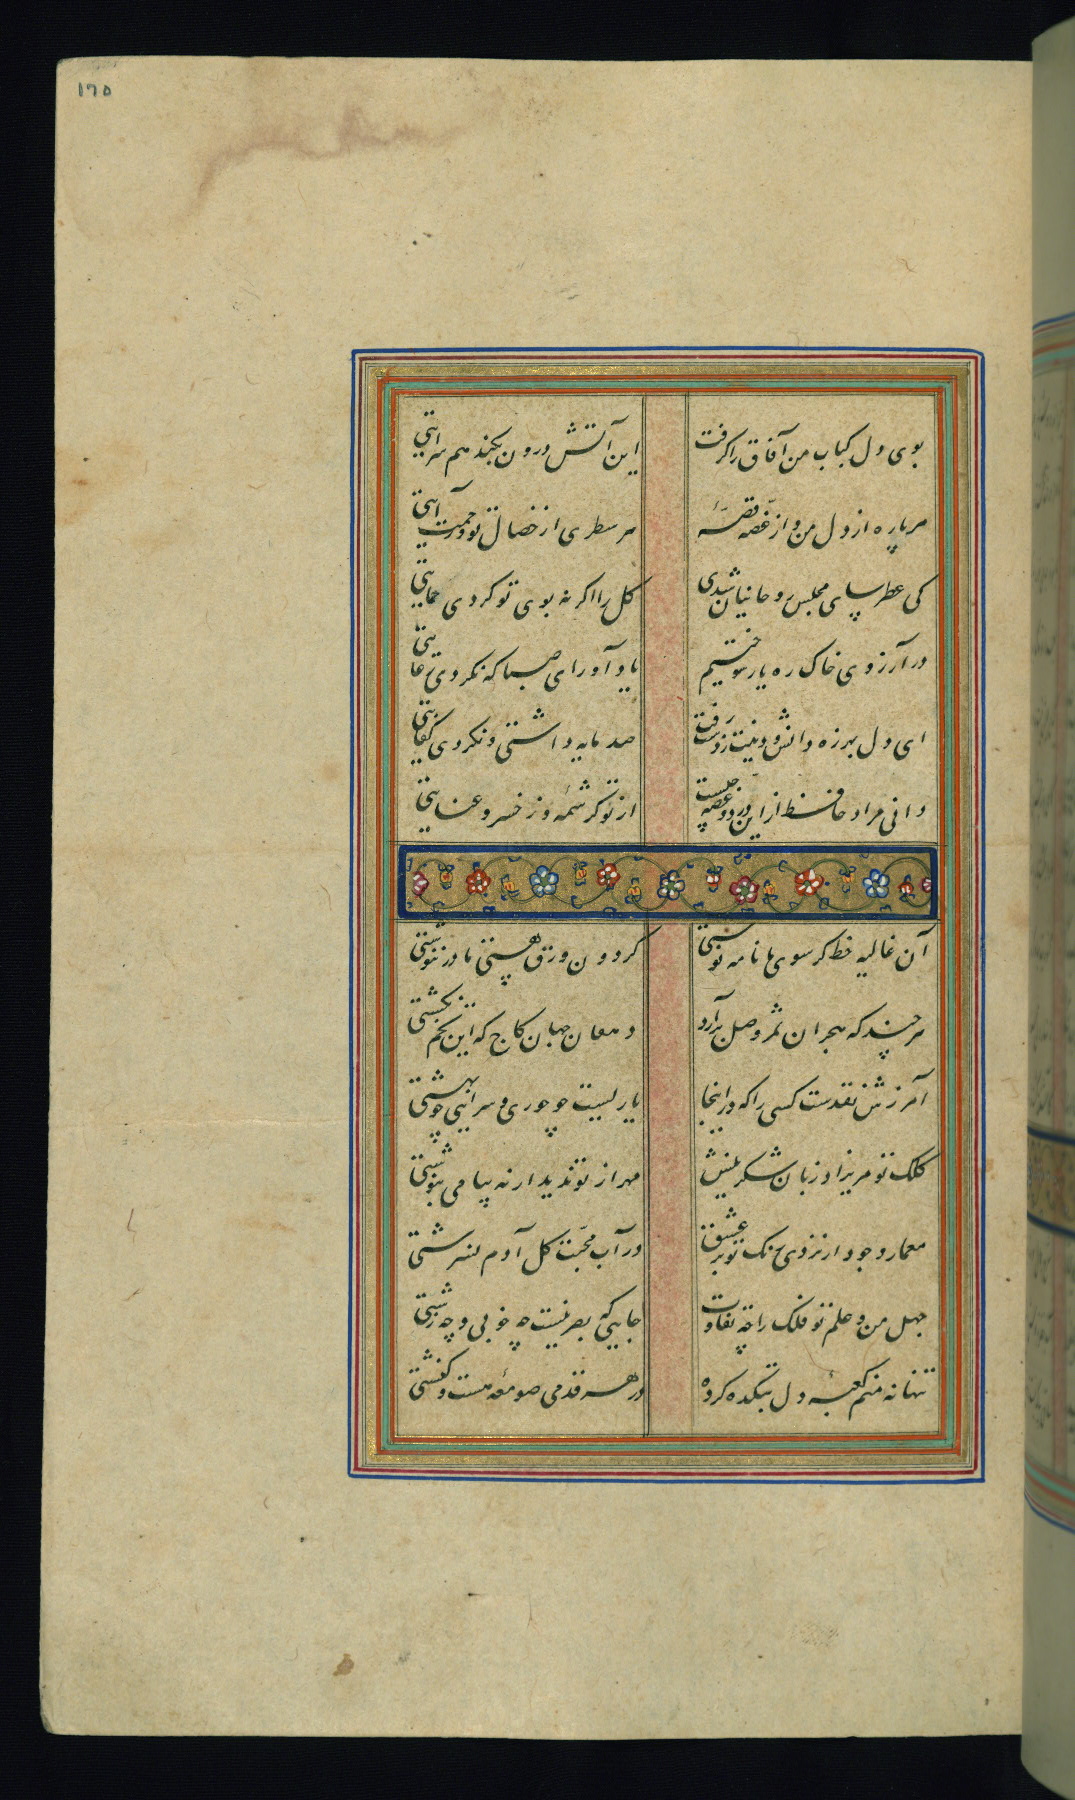 ١٦٥
بوی دل کباب من آفاق را گرفت این آتش درون بکند هم سرایتی
هر پاره از دل من و از غصه قصهٔ هر سطری از خصال تو و رحمت آیتی
کی عطرسای مجلس روحانیان شدی گل را اگر نه بوی تو کردی حمایتی
در آرزوی خاک ره یار سوختیم یاد آور ای صبا که نکردی عایتی
ای دل بهرزه دانش و دینت ز دست رفت صد مایه داشتی و نکردی کفایتی
دانی مراد حافظ از این درد و غصه چیست از تو کرشمهٔ و ز خسرو عنایتی
آن غالیه خط گر سوی ما نامه نوشتی گردون ورق هستی ما در ننوشتی
هر چند که هجران ثمر وصل برآرد دهقان جهان کاج که این تخم نکشتی
آمرزش نقدست کسی را که در اینجا یاریست چو حوری و سرایی چو بهشتی
کلک تو مریزاد زبان شکرینش مهر از تو ندید ار نه پیامی بنوشتی
معمار وجود ار نزدی نک تو بر عشق در آب محبت گل آدم نسرشتی
جهل من و علم تو فلک را چه تفاوت جایی که بصر نیست چه خوبی و چه زشتی
تنها نه منم کعبهٔ دل بتکده کرده در هر قدمی صومعهٔ هست و کنشتی